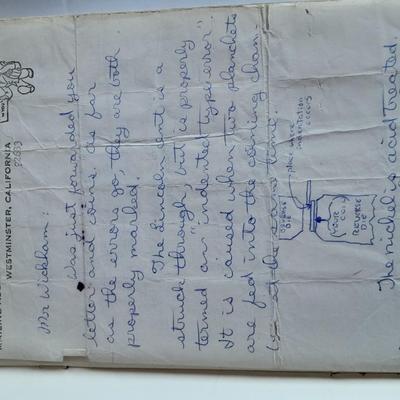 WESTMINSTER, CALIFORNIA
92683
Mr Wickham:
Was just forwarded your
letter and coins. As far
as the errors go, they are both
properly marked.
The Lincoln cent is a
struck through, but is properly
termed an "indented type error".
It is caused when two planchets
are fed into the coining cham
ber at the same time.
place where
indentation
occurs
OBVERSE
DIE
YOUR
COIN
REVERSE
DIE
The nickel is acid treated.